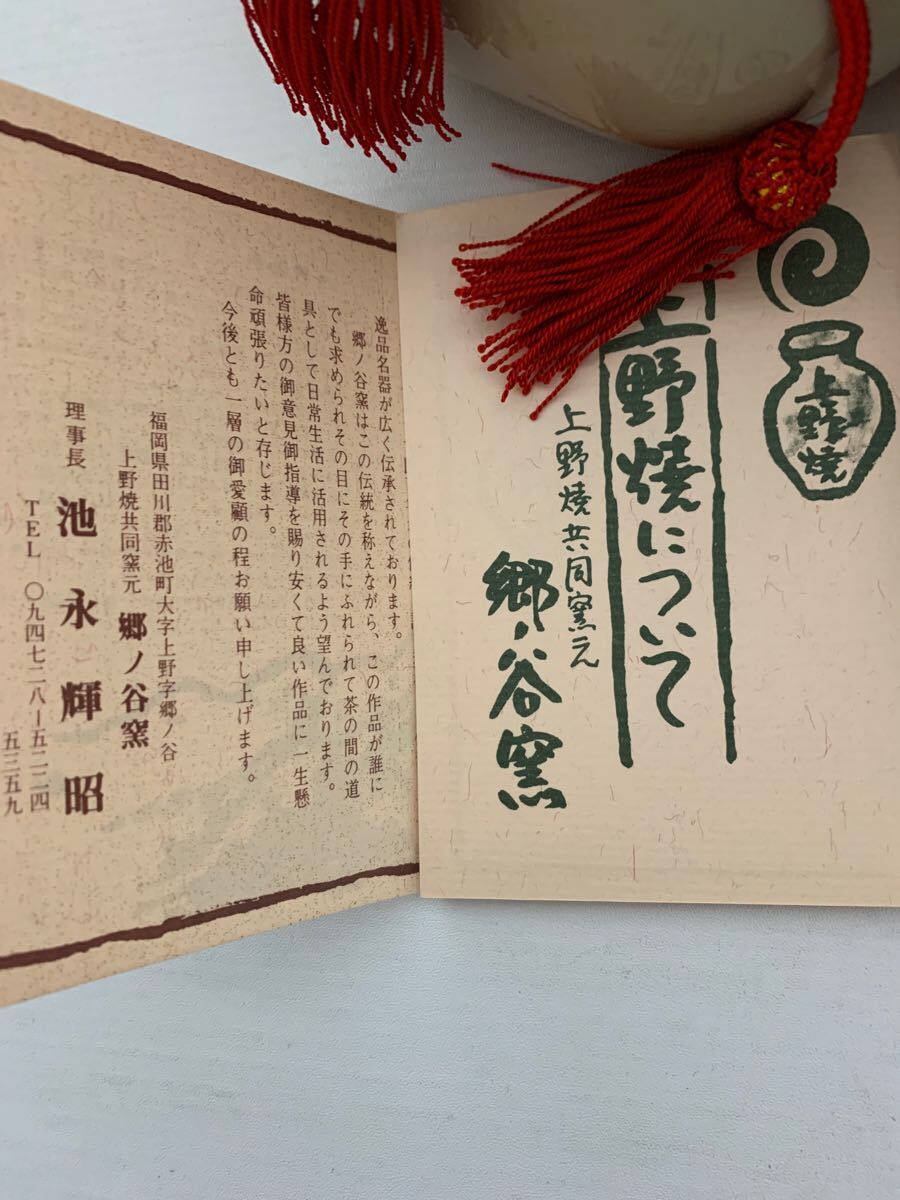 上野燒
上野燒について
上野燒共同窯元
郷ノ谷窯
逸品名器が広く伝承されております。
郷ノ谷窯はこの伝統を称えながら、この作品が誰に
でも求められその目にその手にふれられて茶の間の道
具として日常生活に活用されるよう望んでおります。
皆様方の御意見御指導を賜り安くて良い作品に一生懸
命頑張りたいと存じます。
今後とも一層の御愛顧の程お願い申し上げます。
福岡県田川郡赤池町大字上野字郷ノ谷
上野焼共同窯元 郷ノ谷窯
理事長 池永輝昭
TEL 〇九四七二八ー五二二四
五三五九